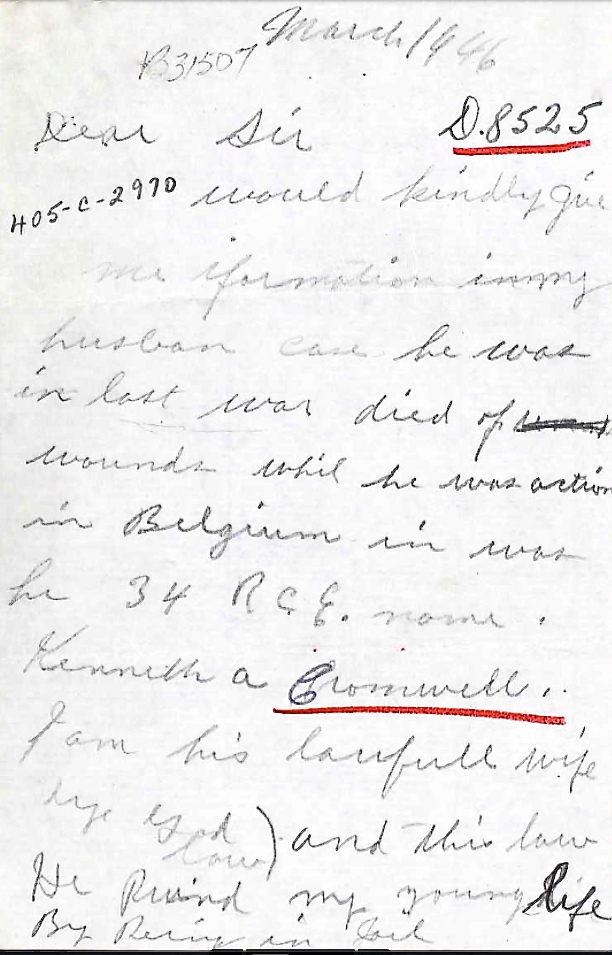 March 1946
B31507
Dear Sir D.8525
405-C-2970 would kindly give
me iformation in my
husban case he was
in last war died of
wounds whil he was action
in Belgium in was
he 34 R.C.E. name.
Kenneth a Cromwell.
I am his laufull wife
bye God
law) and this law
He Ruind my young life
By Being in Jail